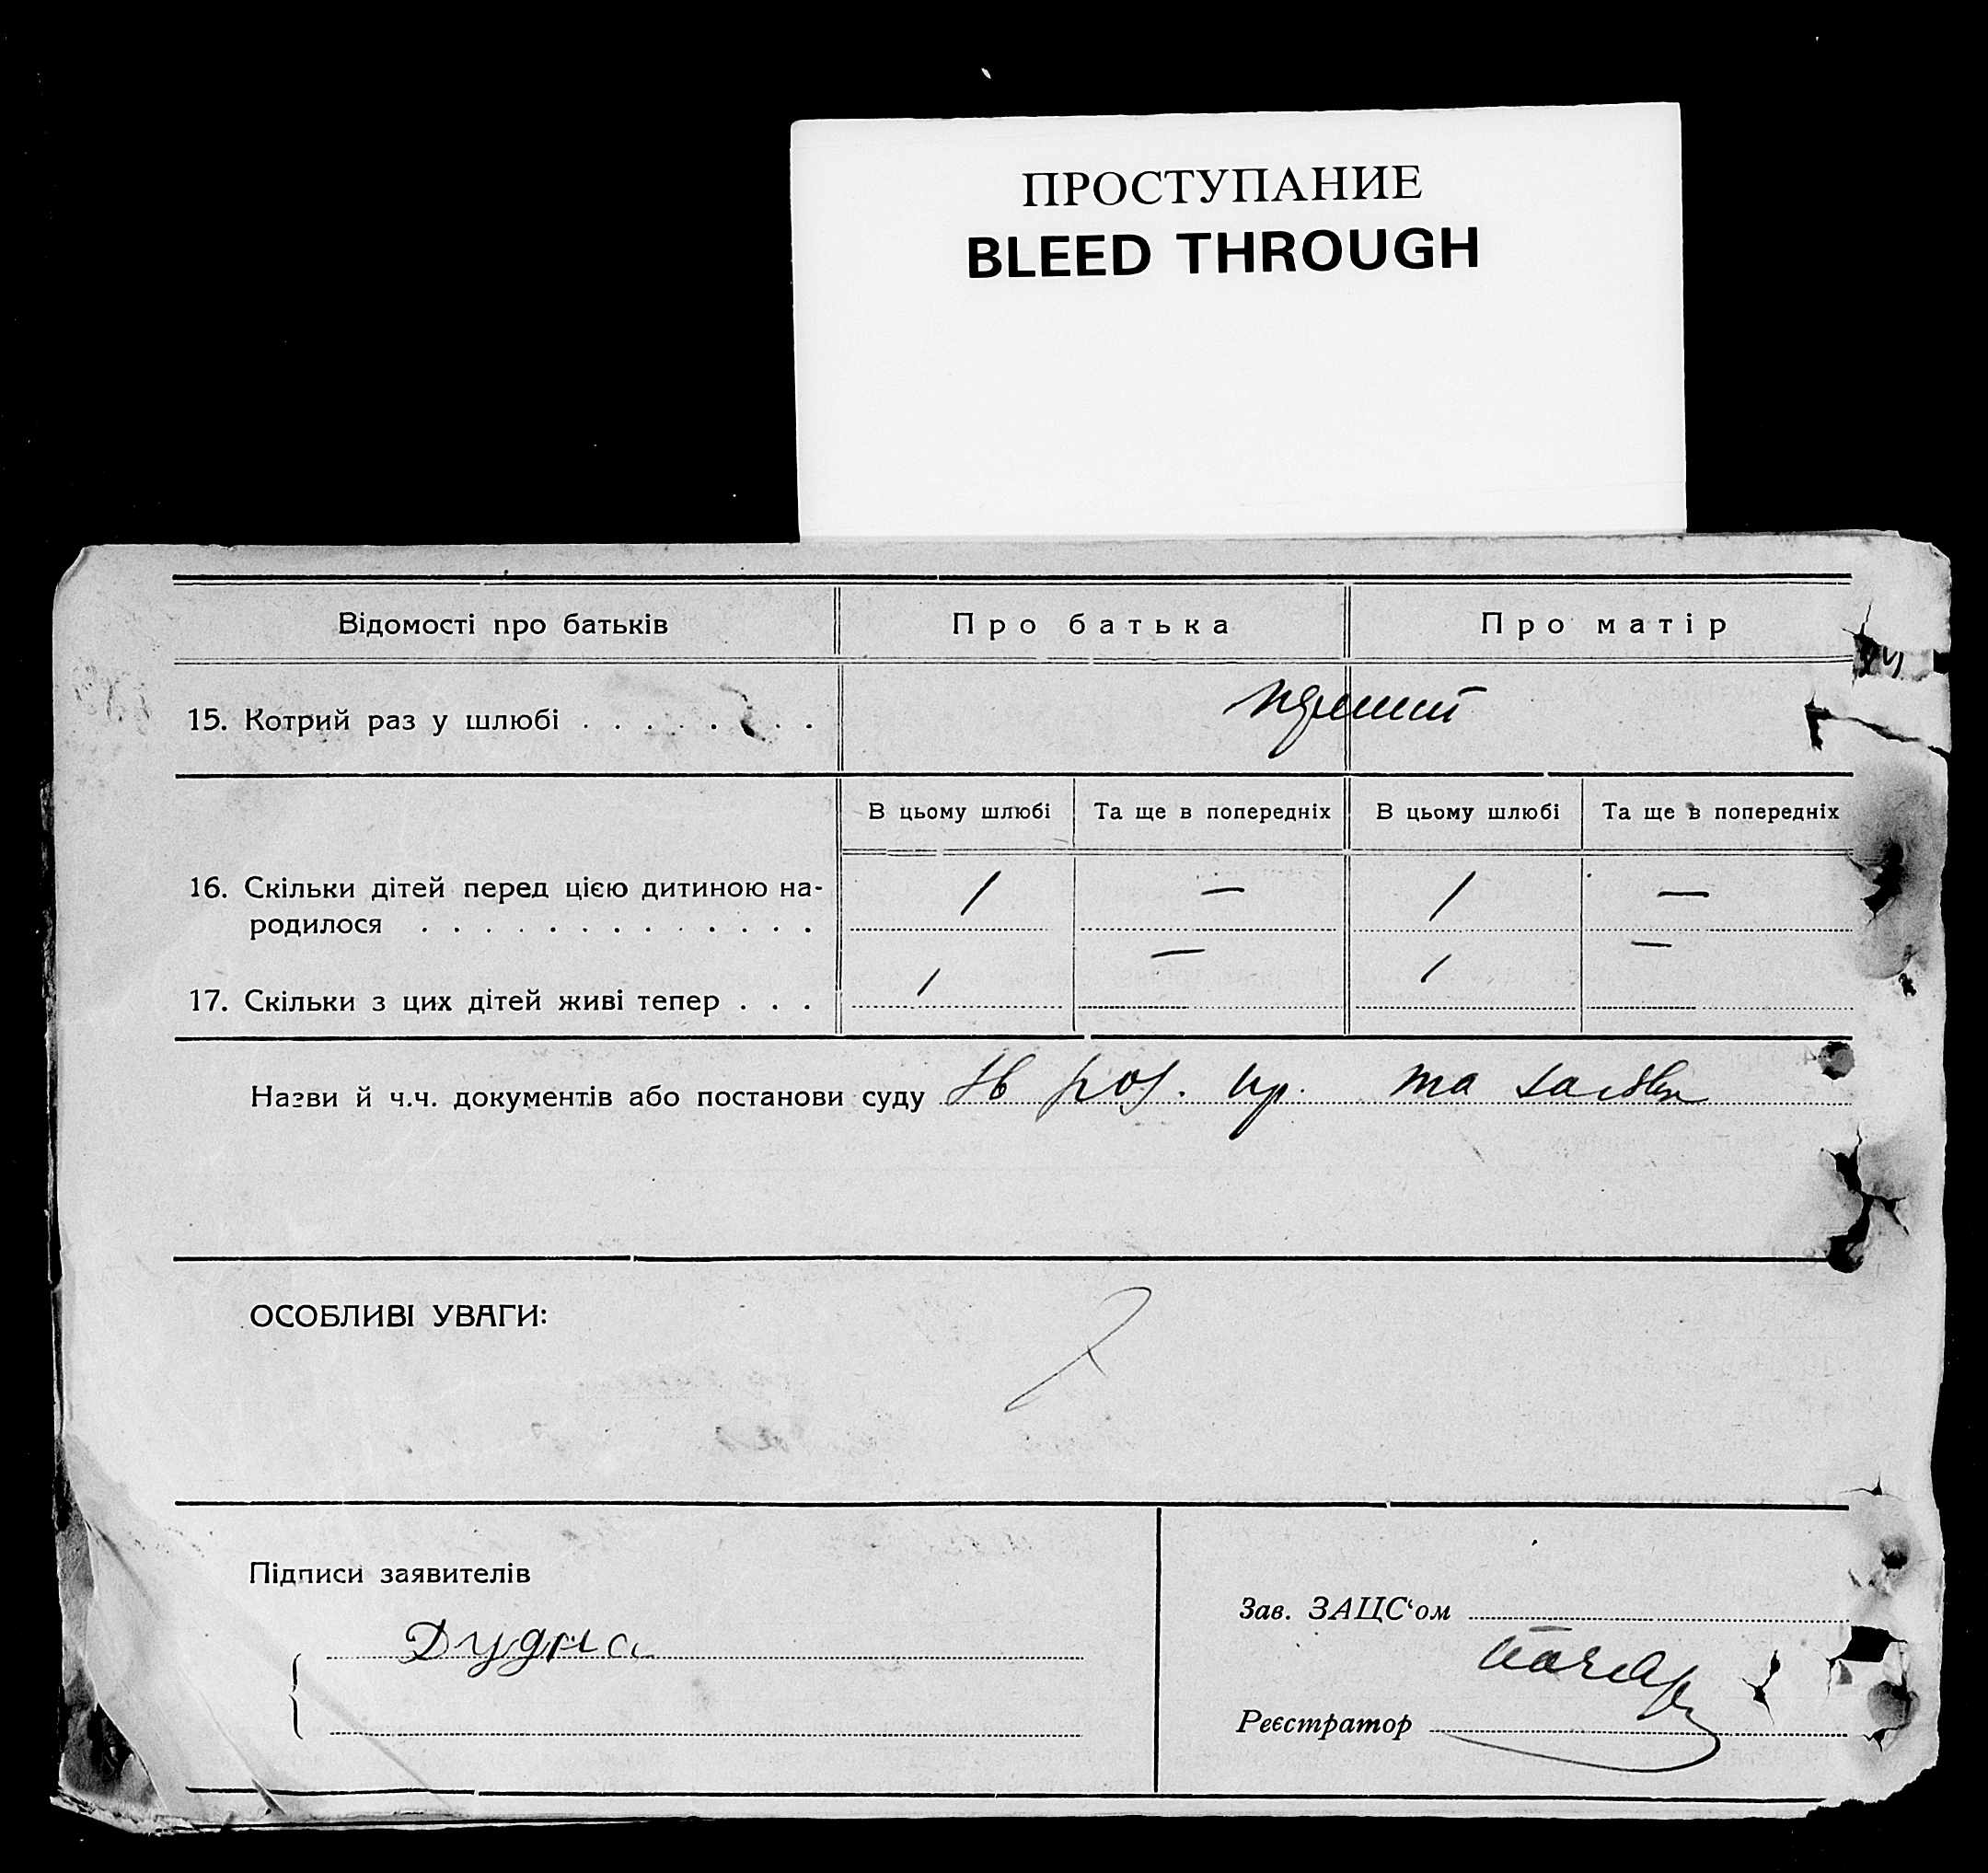 ПРОСТУПАНИЕ
BLEED THROUGH
Відомості про батьків Про батька Про матір
15. Котрий раз у шлюбі . . . . . . . .
В цьому шлюбі Та ще в попередніх В цьому шлюбі Та ще в попередніх
16. Скільки дітей перед цією дитиною на- 1 — 1 —
родилося . . . . . . . . . . . . .
17. Скільки з цих дітей живі тепер . . . 1 — 1 —
Назви й ч.ч. документів або постанови суду та
ОСОБЛИВІ УВАГИ:
Підписи заявителів
Зав. ЗАЦС‘ом
Дудка
Реєстратор